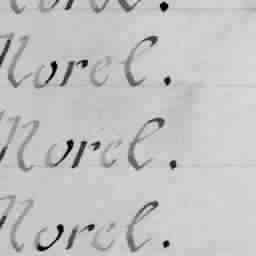 Morel.
Morel.
Morel.
Morel.